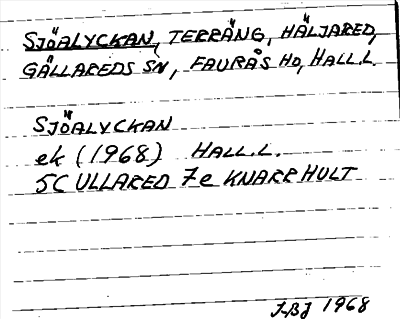 SJÖALYCKAN, TERRÄNG, HÄLJARED,
GÄLLAREDS SN, FAURÅS HD, HALL.L.
SJÖALYCKAN
ek (1968) HALL.L.
5C ULLARED 7e KNARRHULT
1968